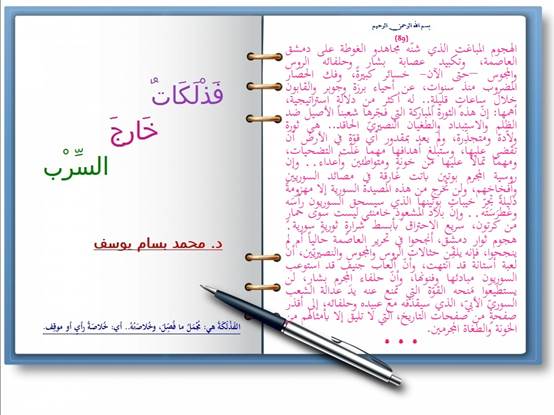 بسم الله الرحمن الرحيم
{89}
الهجوم المباغت الذي شنّه مجاهدو الغوطة على دمشق
العاصمة، وتكبيد عصابة بشار وحلفائه الروس
والمجوس –حتى الآن– خسائر كبيرةً، وفك الحصار
المضروب منذ سنوات، عن أحياء برزة وجوبر والقابون
خلال ساعات قليلة.. له أكثر من دلالة استراتيجية،
أهمها: إن هذه الثورة المباركة التي فجّرها شعبنا الأصيل ضد
الظلم والاستبداد والطغيان النصيريّ الحاقد.. هي ثورة
ولّادة ومتجذّرة، ولم يعد بمقدور أي قوة في الأرض أن
تقضي عليها، وستبلغ أهدافها مهما غلت التضحيات،
ومهما تمالأ عليها من خونةٍ ومتواطئين وأعداء.. وإن
روسية المجرم بوتين باتت غارقة في مصائد السوريين
وأفخاخهم، ولن تخرج من هذه المصيدة السورية إلا مهزومةً
ذليلةً تجرّ خيبات بوتينها الذي سيسحق السوريون رأسَه
وغطرستَه.. وإن بلاد المشعوذ خامنئي ليست سوى خمارٍ
من كرتون، سريع الاحتراق بأبسط شرارةٍ ثوريةٍ سورية.
هجوم ثوار دمشق، أنجحوا في تحرير العاصمة حالياً أم لم
ينجحوا، فإنه يلقّن حثالات الروس والمجوس والنصيريين، أن
لعبة أستانة قد انتهت، وأن ألعاب جنيف قد استوعب
السوريون مبادئها وفنونها، وأن حلفاء المجرم بشار، لن
يستطيعوا منحه القوّة التي تمنع عنه يدَ عدالة الشعب
السوريّ الأبيّ، الذي سيقذفه مع عبيده وحلفائه، إلى أقذر
صفحةٍ من صفحات التاريخ، التي لا تليق إلا بأمثالهم من
الخونة والطغاة المجرمين.
• • •
فَذْلَكَاتٌ
خَارِجَ
السِّرْب
د. محمد بسام يوسف
الفَذْلَكَةُ هي: مُجْمَلُ ما فُصِّلَ، وخُلاصَتُهُ.. أي: خُلاصَةُ رأيٍ أو موقِف.